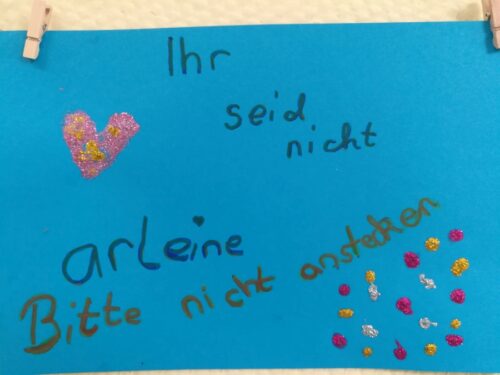 Ihr
seid
nicht
arleine
Bitte nicht anstecken